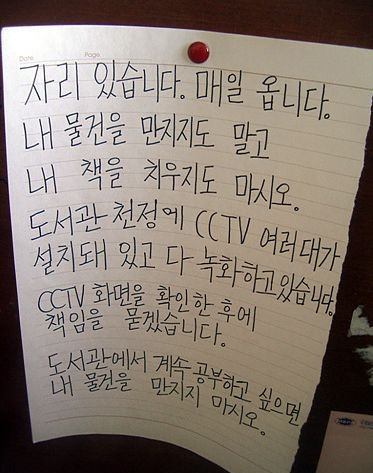 Date Page
자리 있습니다. 매일 옵니다.
내 물건을 만지지도 말고
내 책을 치우지도 마시오.
도서관 천정에 CCTV 여러대가
설치돼 있고 다 녹화하고있습니다.
CCTV 화면을 확인한 후에
책임을 묻겠습니다.
도서관에서 계속 공부하고 싶으면
내 물건을 만지지 마시오.